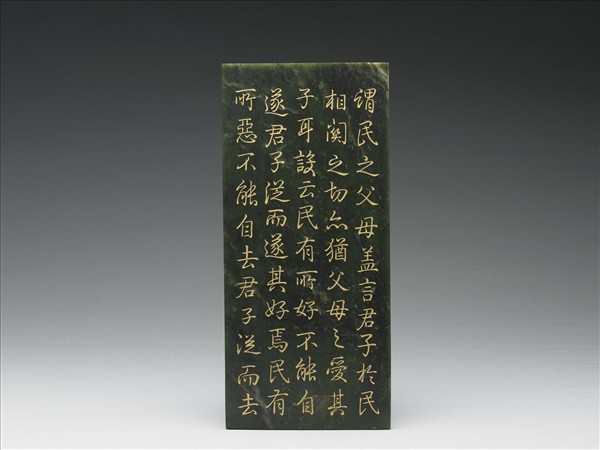 謂民之父母盖言君子於民
相闗之切亦猶父母之愛其
子耳設云民有所好不能自
遂君子從而遂其好焉民有
所惡不能自去君子從而去